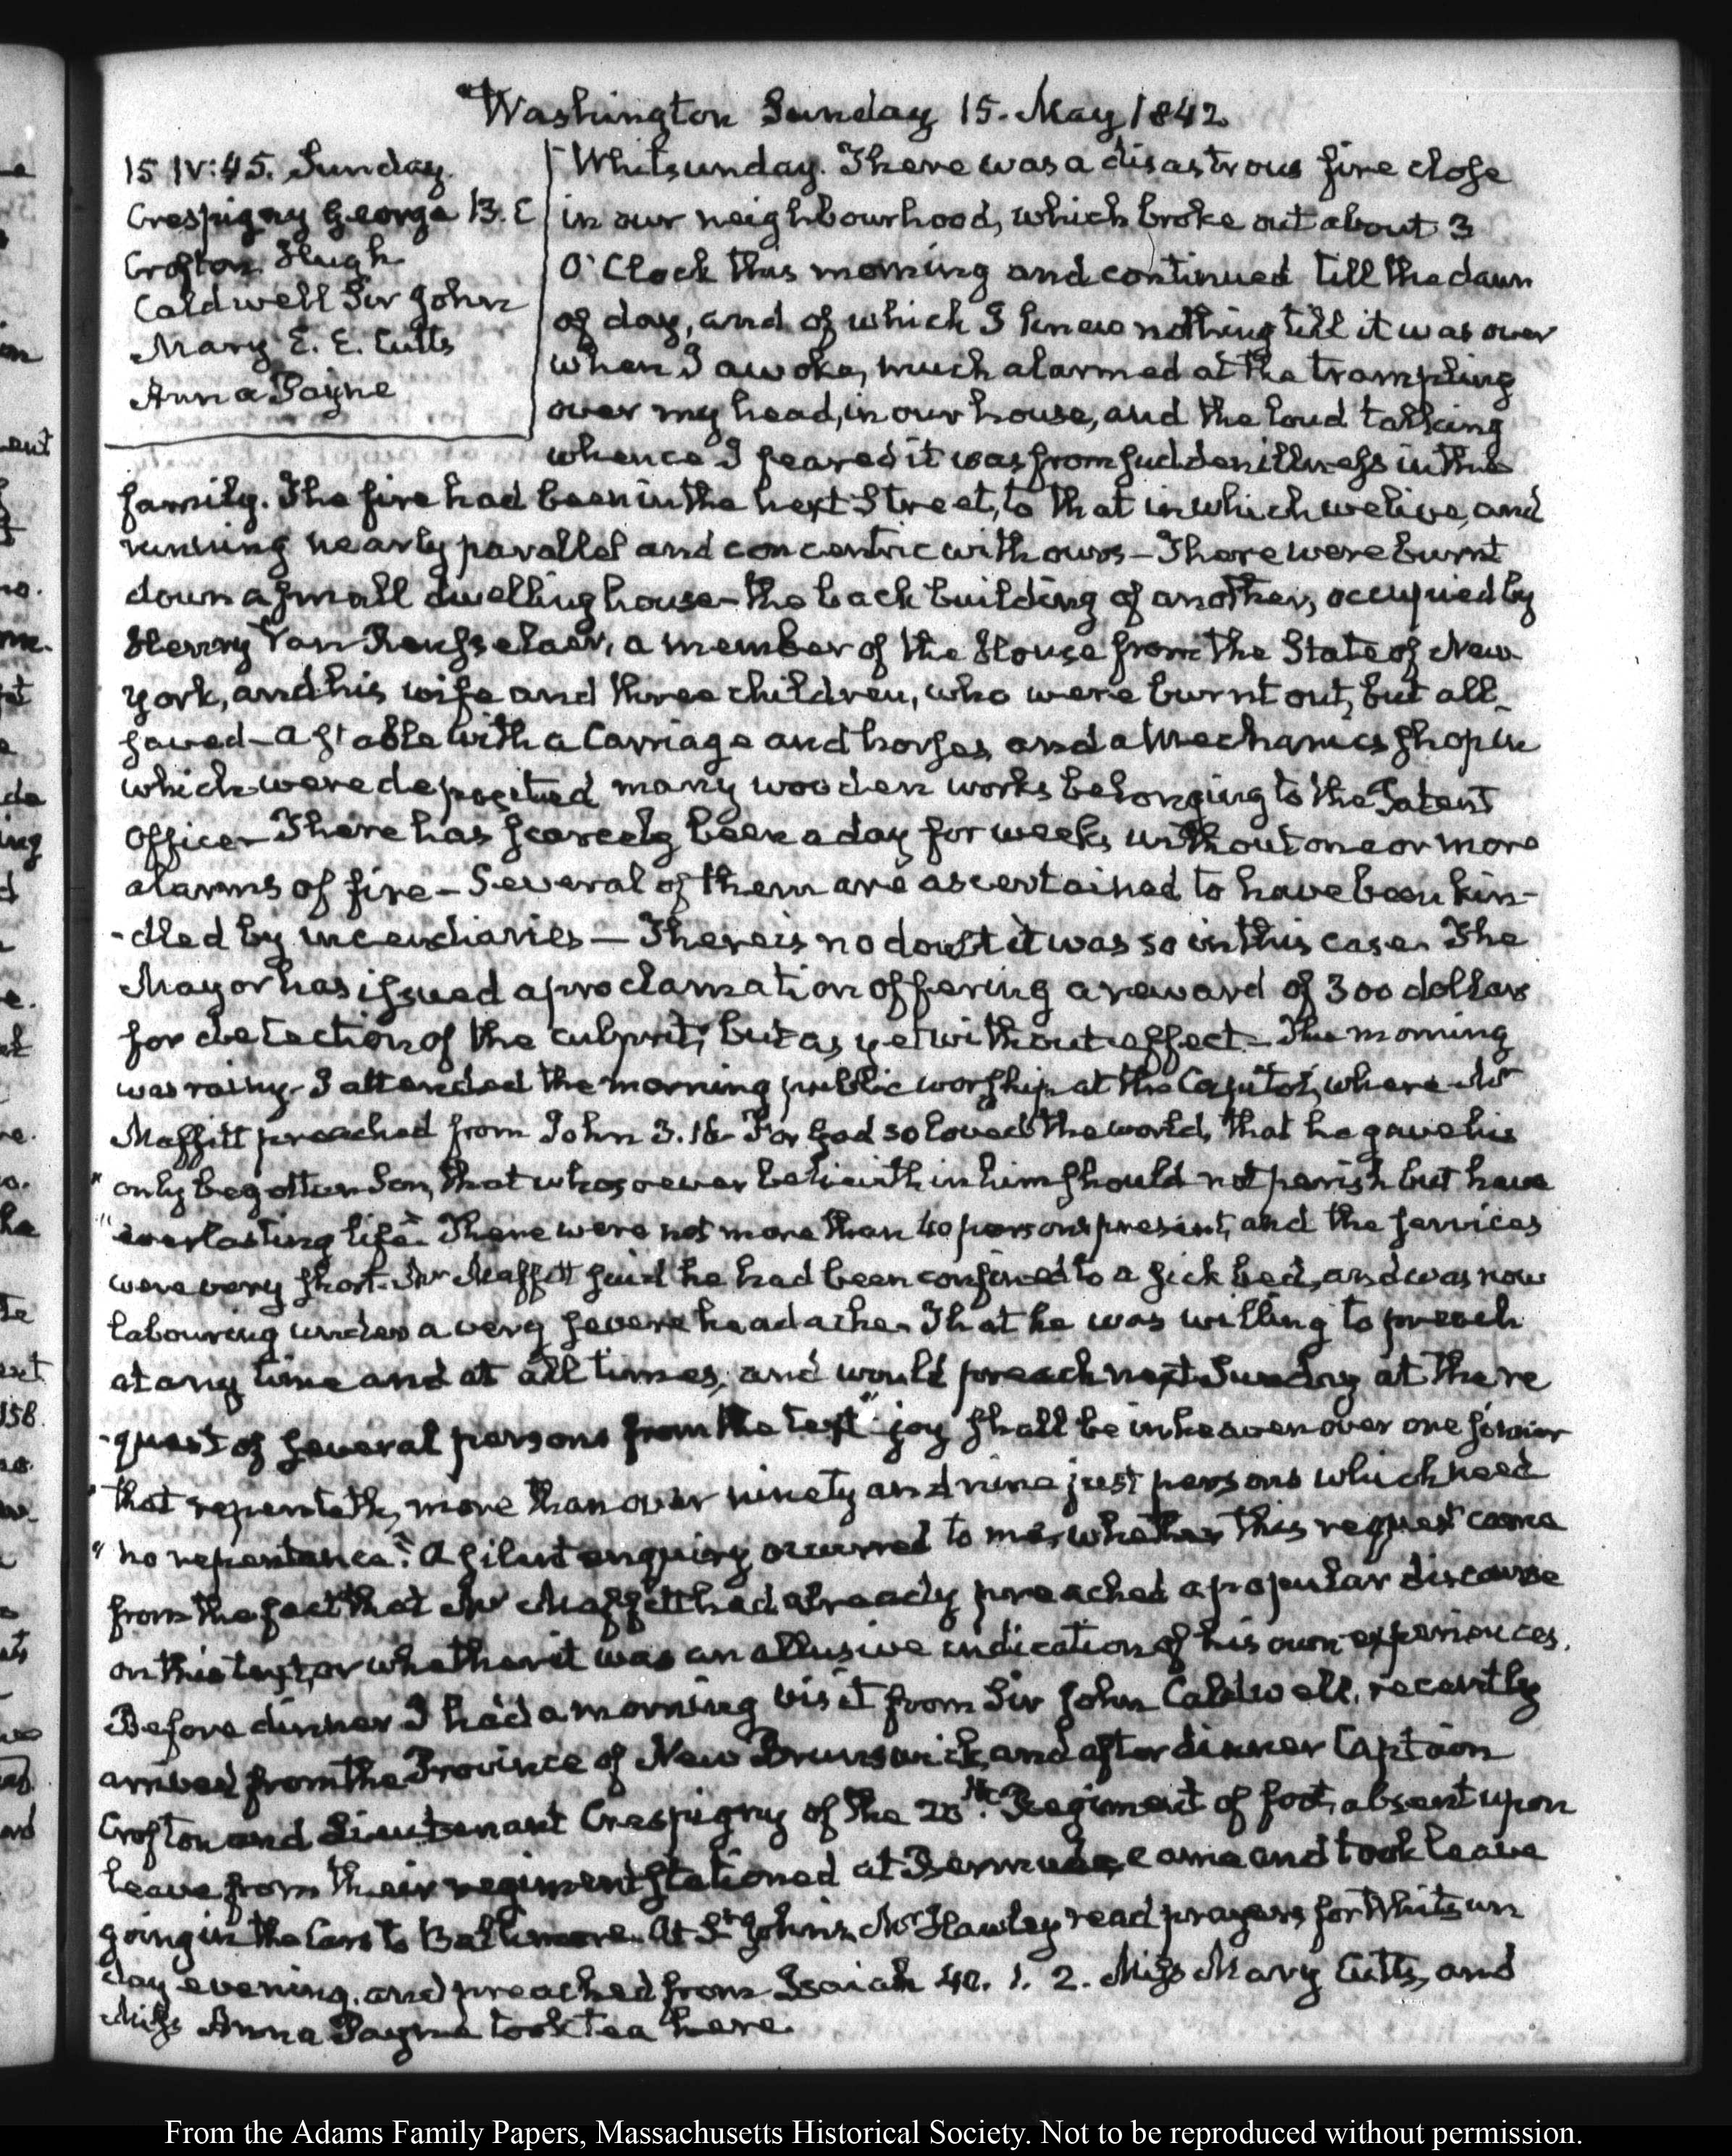 Washington Sunday 15. May 1842
15 IV:45. Sunday.
Crespigny George B. C
Crofton Hugh
Caldwell Sir John
Mary E. E. Cutts
Anna Payne
Whitsunday. There was a disastrous fire close
in our neighbourhood, which broke out about 3
O'Clock this morning and continued till the dawn
of day, and of which I knew nothing till it was over
when I awoke, much alarmed at the trampling
over my head, in our house, and the loud talking
whence I feared it was from sudden illness in the
family. The fire had been in the next Street, to that in which we live, and
running nearly parallel and concentric with ours — There were burnt
down a small dwelling house — the back building of another, occupied by
Henry Van Rensselaer, a member of the House from the State of New-
York, and his wife and three children, who were burnt out, but all
saved — a stable with a Carriage and horses, and a Mechanics shop in
which were deposited many wooden works belonging to the Patent
Office — There has scarcely been a day for weeks without one or more
alarms of fire — Several of them are ascertained to have been kin-
-dled by incendiaries — There is no doubt it was so in this case. The
Mayor has issued a proclamation offering a reward of 300 dollars
for detection of the culprit; but as yet without effect — The morning
was rainy. I attended the morning public worship at the Capitol, where Mr
Maffitt preached from John 3.16. For God so loved the world, that he gave his
" only begotten Son, that whosoever believeth in him should not perish but have
" everlasting life." There were not more than 40 persons present, and the services
were very short. Mr Maffitt said he had been confined to a sick bed, and was now
labouring under a very severe headache. That he was willing to preach
at any time and at all times, and would preach next Sunday at the re
-quest of several persons from the text " joy shall be in heaven over one sinner
" that repenteth, more than over ninety and nine just persons which need
" no repentance." A silent enquiry occurred to me, whether this request came
from the fact that Mr Maffitt had already preached a popular discourse
on this text, or whether it was an allusive indication of his own experiences.
Before dinner I had a morning visit from Sir John Caldwell, recently
arrived from the Province of New Brunswick, and after dinner Captain
Crofton and Lieutenant Crespigny of the 20th. Regiment of foot, absent upon
leave from their regiment stationed at Bermuda, came and took leave
going in the Cars to Baltimore. At St John's, Mr Hawley read prayers for Whitsun
day evening, and preached from Isaiah 40. 1. 2. Miss Mary Cutts, and
Miss Anna Payne took tea here.
From the Adams Family Papers, Massachusetts Historical Society. Not to be reproduced without permission.